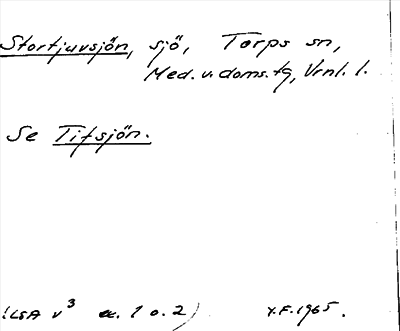 Stortjuvsjön, sjö, Torps sn,
Med. v. doms. tg, Vrnl. l.
Se Tifsjön.
(LSA v³ ec. 1 o. 2) Y.F. 1965.